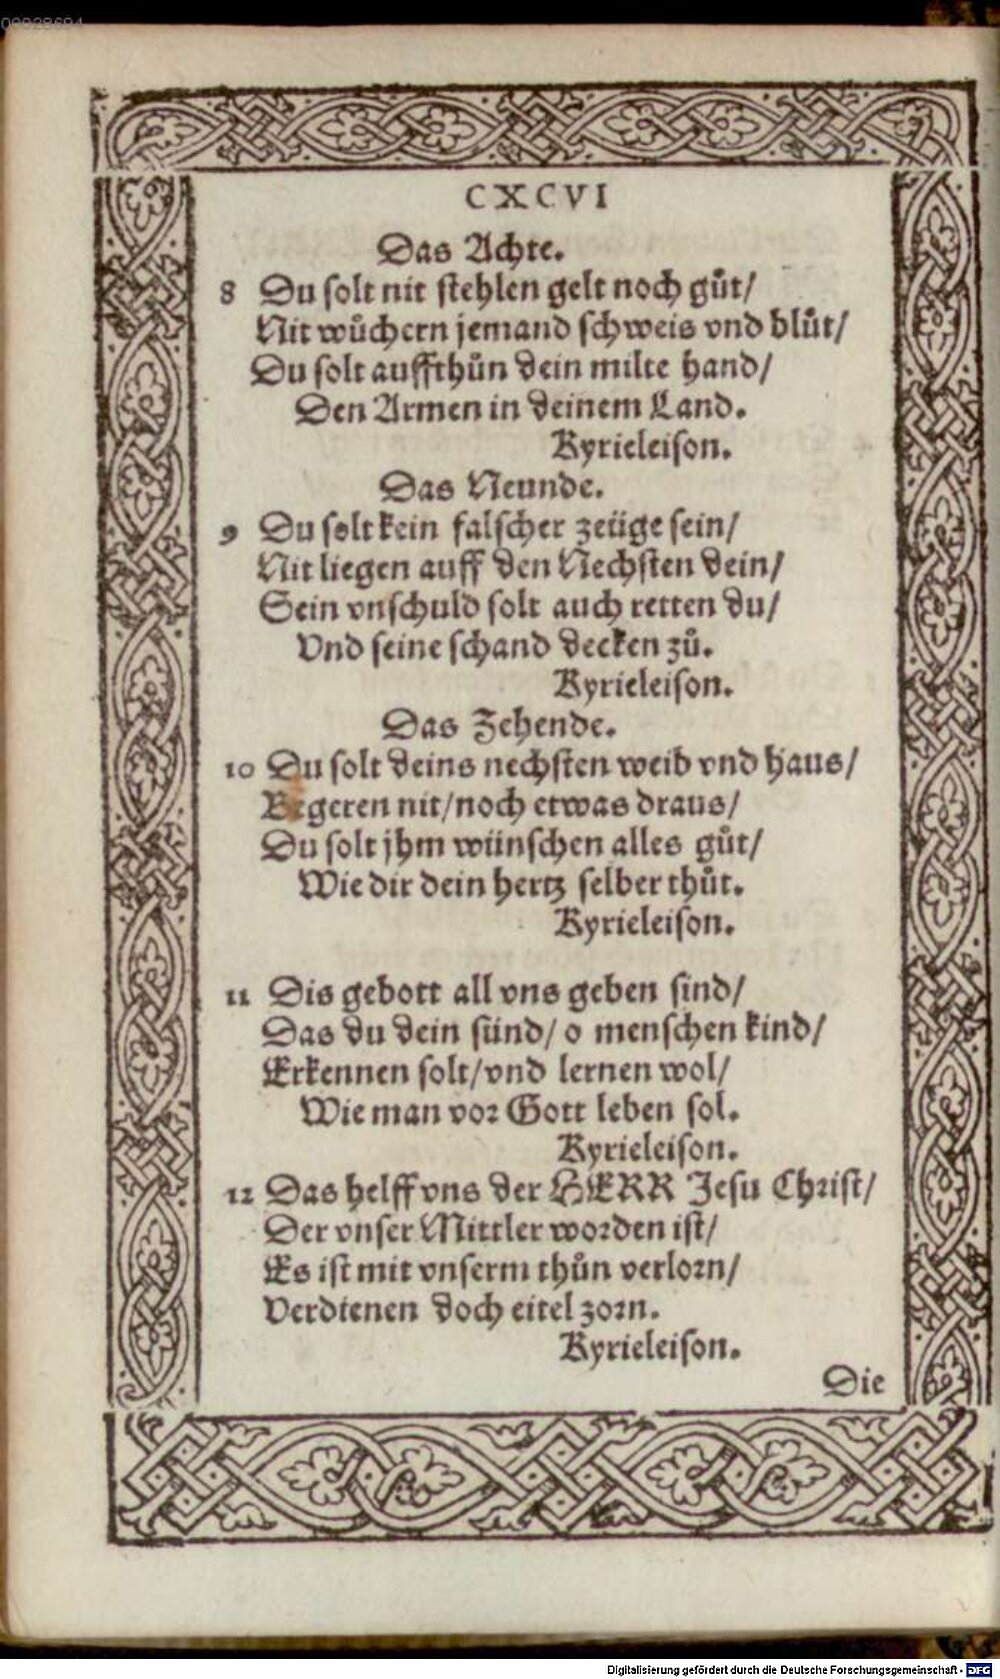 00028694
CXCVI
Das Achte.
8 Du solt nit stehlen gelt noch gůt/
Nit wůchern jemand schweis vnd blůt/
Du solt auffthůn dein milte hand/
Den Armen in deinem Land.
Kyrieleison.
Das Neunde.
9 Du solt kein falscher zeüge sein/
Nit liegen auff den Nechsten dein/
Sein vnschuld solt auch retten du/
Vnd seine schand decken zů.
Kyrieleison.
Das Zehende.
10 Du solt deins nechsten weib vnd haus/
Begeren nit/noch etwas draus/
Du solt jhm wünschen alles gůt/
Wie dir dein hertz selber thůt.
Kyrieleison.
11 Dis gebott all vns geben sind/
Das du dein sünd/ o menschen kind/
Erkennen solt/vnd lernen wol/
Wie man vor Gott leben sol.
Kyrieleison.
12 Das helff vns der HERR Jesu Christ/
Der vnser Mittler worden ist/
Es ist mit vnserm thůn verlorn/
Verdienen doch eitel zorn.
Kyrieleison.
Die
Digitalisierung gefördert durch die Deutsche Forschungsgemeinschaft - DFG